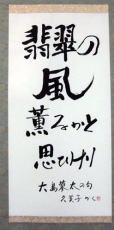 翡翠の
風
薫るかと
思ひけり
大島蓼太の句
久美子かく